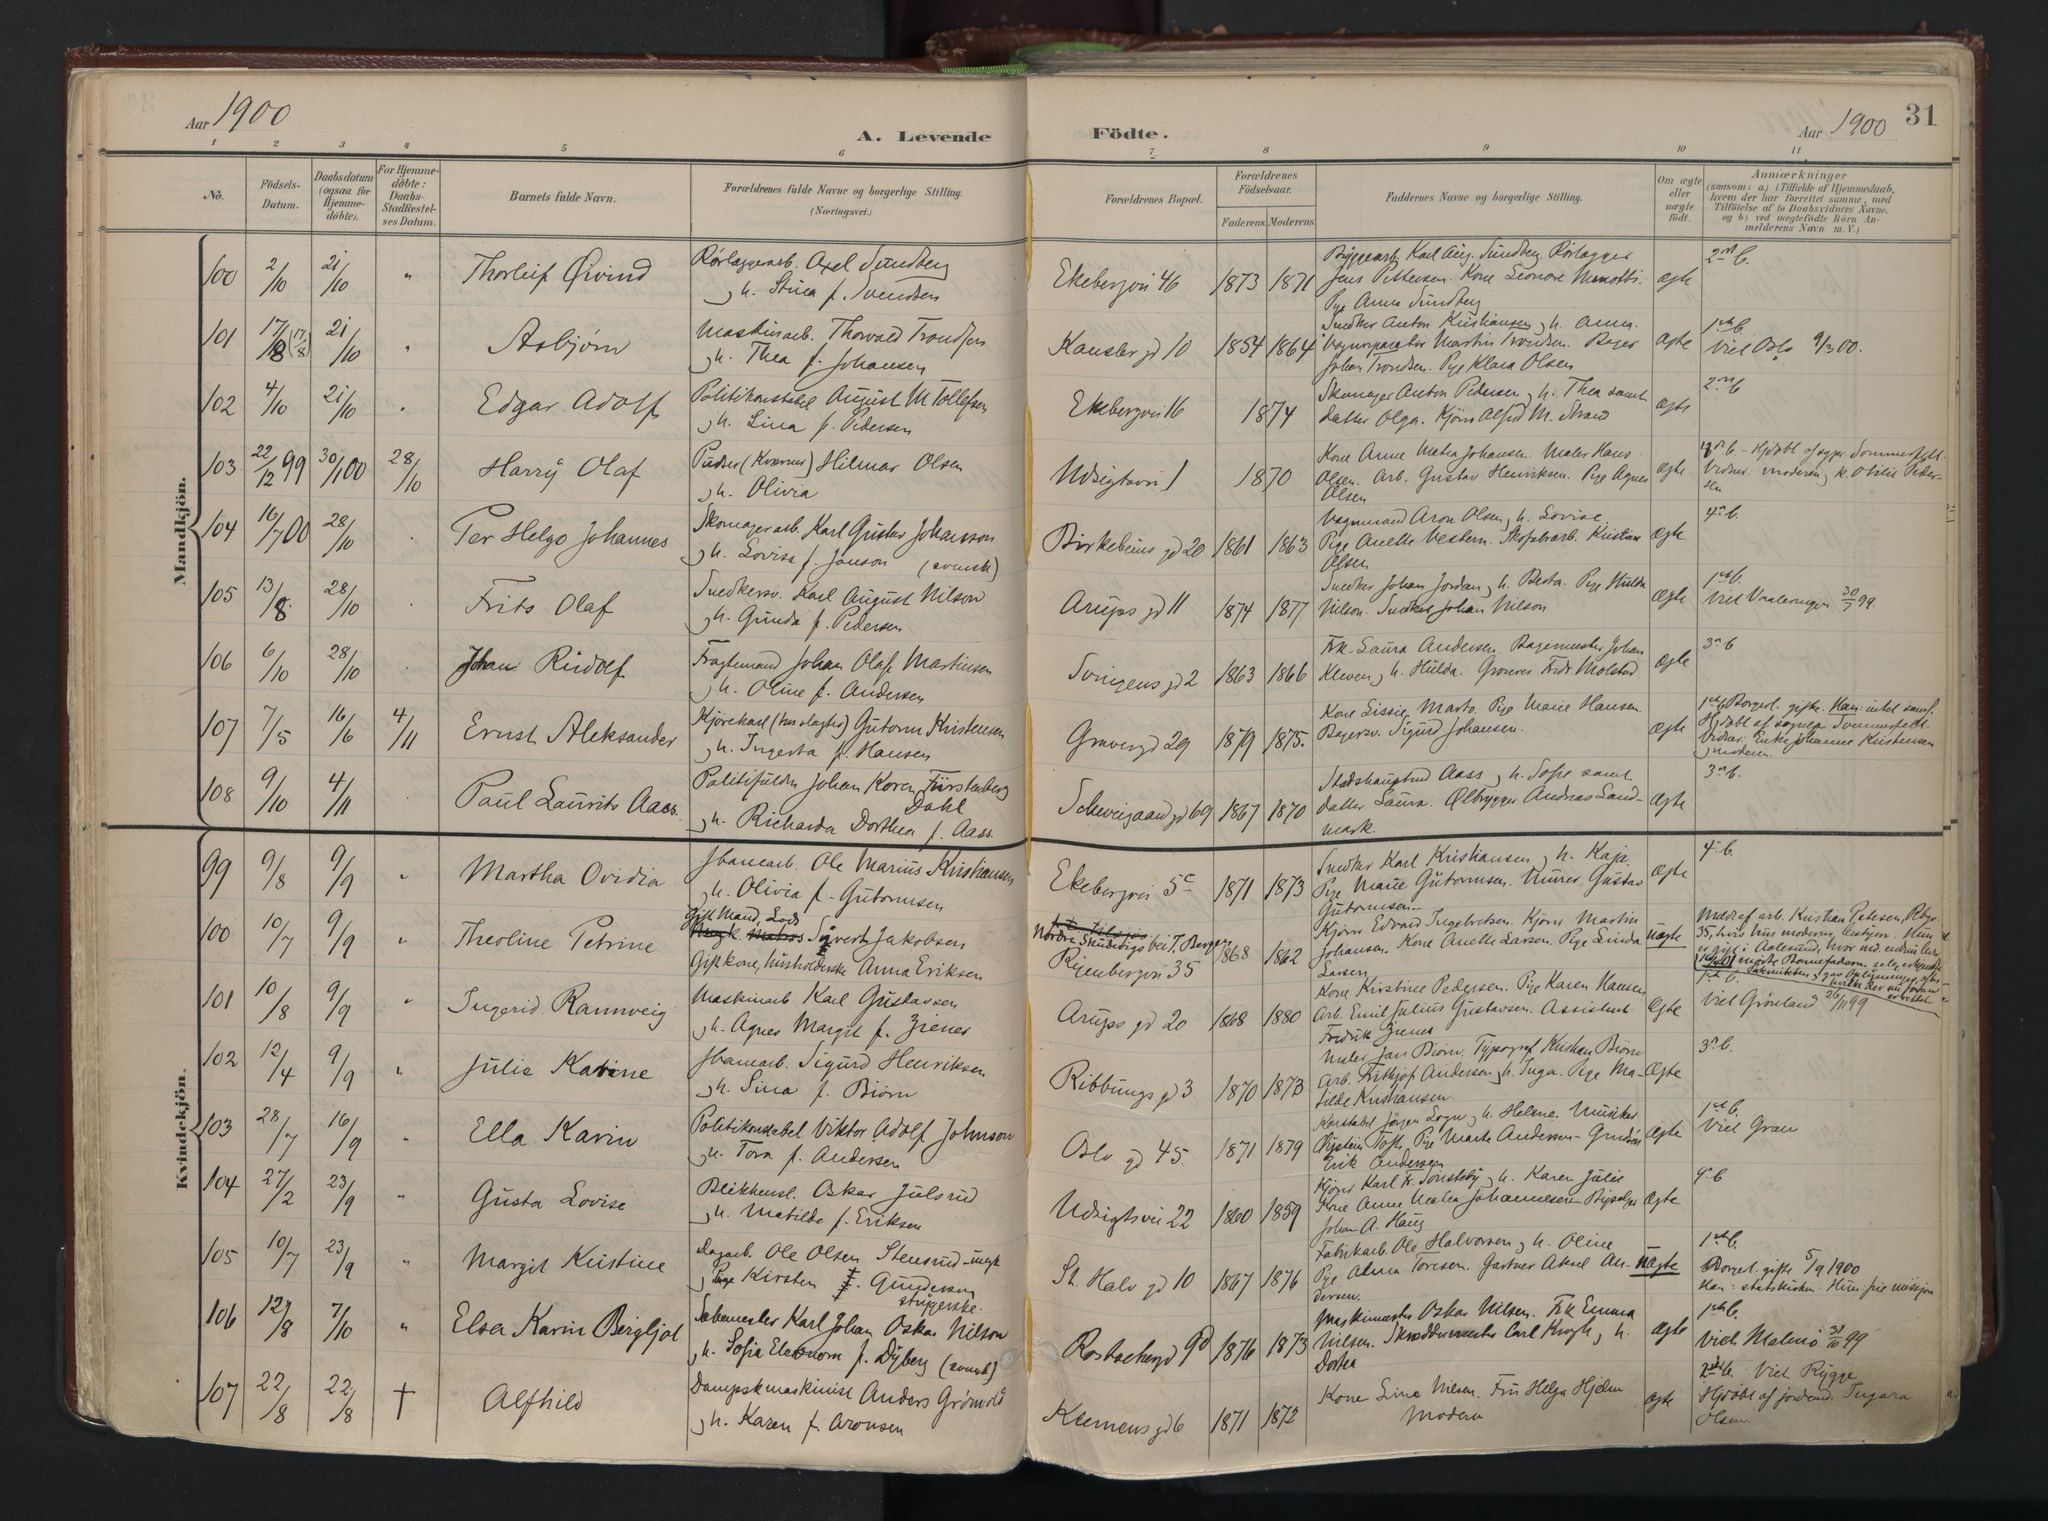 Aar 1900
A. Levende
Födte.
Aar 1900
31
1 2 3 4 5 6 7 8 9 10 11
No.
Födsels-
Datum.
Daabsdatum
(ogsaa för
Hjemme-
döbte).
For Hjemme-
döbte:
Daabs-
Stadfæstel-
ses Datum.
Barnets fulde Navn.
Forældrenes fulde Navne og borgerlige Stilling.
(Næringsvei.)
Forældrenes Bopæl.
Forældrenes
Födselsaar.
Faderens.
Moderens.
Faddernes Navne og borgerlige Stilling.
Om ægte
eller
uægte
födt.
Anmærkninger
(saasom: a) i Tilfælde af Hjemmedaab,
hvem der har forrettet samme, med
Tilföielse af to Daabsvidners Navne,
og b) ved uægtefödte Börn An-
melderens Navn m. V.)
Mandkjön.
100 2/10 21/10 " Thorleif Øivind
Rørlæggerarb. Axel Sundberg
og h. Stina f. Svendsen
Ekebergvei 46 1873 1871
Bryggearb. Karl Aug. Sundberg. Rørlægger
Jens Pettersen. Kone Leonore
Pige Anna Sundberg
ægte
101 17/8 (17/8) 21/10 " Asbjørn
Maskinarb. Thorvald Trondsen
og h. Thea f. Johansen
Kanslergd 10 1854 1864
Snedker Anton Kristiansen og h. Anna.
Martin Trondsen.
Johan Trondsen. Pige Klara Olsen
ægte
Viet Oslo 9/3 00.
102 4/10 21/10 Edgar Adolf
Politikonstabel August M Tollefsen
og h. Lina f. Pedersen
Ekebergvei 16 1874
Skomager Anton Pedersen og h. Thea samt
datter Olga. Kjører Alfred M. Strand
ægte
103 22/12 99 30/1 00 28/10 Harry Olaf
Pudser (Kværner) Hilmar Olsen
og h. Olivia
Udsigtsvei 1 1870
Kone Anne Matea Johansen. Maler Hans
Olsen. Arb. Gustav Henriksen. Pige Agnes
Olsen
ægte
104 16/7 00 28/10 Per Helge Johannes
Skomagerarb. Karl Gustav Johansson
og h. Lovisa f. Janson (svensk)
Birkebeins gd 20 1861 1863
Vognmand Aron Olsen og h. Lovise.
Pige Anette Vestern. Skofabarb. Kristian
Olsen
ægte 4de b.
105 13/8 28/10 Frits Olaf
Snedkersv. Karl August Nilson
og h. Gunda f. Pedersen
Arups gd 11 1874 1877
Snedker Johan Jordan og h. Berta. Pige Hulda
Nilson. Snedker Johan Nilson
ægte
Viet Vaalerengen 30/7 99.
106 6/10 28/10 Johan Rudolf
Fragtemand Johan Olaf Martinsen
og h. Oline f. Andersen
Sverigens gd 2 1863 1866
Frk. Laura Andersen. Bagermester Johan
Kleven og h. Hulda. Grosserer Fredr. Molstad
ægte
107 7/5 16/6 4/11 Ernst Aleksander
Kjørekarl (hos slagter) Gutorm Kristensen
og h. Ingerta f. Hansen
Gravergd 29 1879 1875.
Kone Lissie Marto. Pige Marie Hansen
Bagersv. Sigurd Johansen.
ægte
Borgerl. gifte. Han: intet samf.
Hjdøbt af sognepr. Sommerfeldt.
Vidner: Enke Johanne Kristensen
og moderen
108 9/10 4/11 Paul Laurits Aass.
Politifuldm Johan Koren Fürstenberg
Dahl
og h. Richarda Dorthea f. Aass.
Schweigaardgd 69 1867 1870
Stadshauptmd Aass og h. Sofie samt
datter Laura. Ølbrygger Andreas Land-
mark.
ægte
Kvindekjön.
99 9/8 9/9 " Martha Ovidia
Jbanearb. Ole Marius Kristiansen
og h. Olivia f. Gutormsen
Ekebergvei 5c 1871 1873
Snedker Karl Kristiansen og h. Kaja.
Pige Marie Gutormsen. Murer Gustav
Gutormsen
ægte 4de b.
100 10/7 9/9 " Theoline Petrine
Gift Mand, Lods
Sivert Jakobsen
Gift kone, husholderske Anna Eriksen
Ryenbergvei 35 1868 1862
Kjører Edvard Ingebretsen. Kjører Martin
Johansen. Kone Anette Larsen. Pige Linda
Larsen
uægte
101 10/8 9/9 " Ingerid Rannveig
Maskinarb Karl Gustavsen
og h. Agnes Margit f. Zienes
Arups gd 20 1868 1880
Kone Kirstine Pedersen. Pige Karen Hansen
Arb. Emil Julius Gustavsen. Assistent
Fredrik Zienes
ægte
Viet Grønland 26/11 99
102 12/4 9/9 " Julie Katrine
Jbanearb. Sigurd Henriksen
og h. Lina f. Biørn
Ribbungs gd 3 1870 1873
Maler Jans Biørn. Typograf Kristian Biørn
Arb. Fritjof Andersen og h. Inga. Pige Ma-
tilde Kristiansen
ægte
103 28/7 16/9 " Ella Karin
Politikonstabel Viktor Adolf Johnson
og h. Tora f. Andersen
Oslo gd 45. 1871 1879
Konstabel Jørgen Sogn og h. Helene. Musiker
Øystein Toft. Pige Marte Andersen
Erik Andersen
ægte
Viet Gran
104 27/2 23/9 " Gusta Lovise
Blikkensl. Oskar Julsrud
og h. Matilde f. Eriksen
Udsigtsvei 22 1860 1859
Kjører Karl Fr Tonsteby og h. Karen Julie
Kone Anne Matea Johannesen
Johan A. Haug
ægte
105 10/7 23/9 " Margit Kristine
Dagarb. Ole Olsen Stensrud
og Pige Kirsten Gundersen
strygerske.
St. Halv gd 10 1867 1876
Fabrikarb Ole Halvorsen og h. Oline
Pige Alma Toresen. Gartner Aksel An-
dersen.
uægte
Borgerl. gifte 5/9 1900
Han: statskirken. Hun: frie misjon
106 12/8 7/10 " Elsa Karin Bergljot
Sæbemester Karl Johan Oskar Nilson
og h. Sofia Eleonora f. Dyberg (svensk)
Rostockergd 9d 1876 1873
Maskinmester Oskar Nilsen. Frk Emma
Nilsen. Skræddermester Carl Krogh og h.
Dortea
ægte
Viet Malmø 31/10 99
107 22/8 22/8 † Alfhild
Dampskmaskinist Anders Grønvold
og h. Karen f. Aronsen
Klemens gd 6 1871 1872
Kone Lina Nilsen. Fru Helga Hjelm
Modern
ægte
Viet Rygge
Hjdøbt af jordmd. Ingara
Olsen.